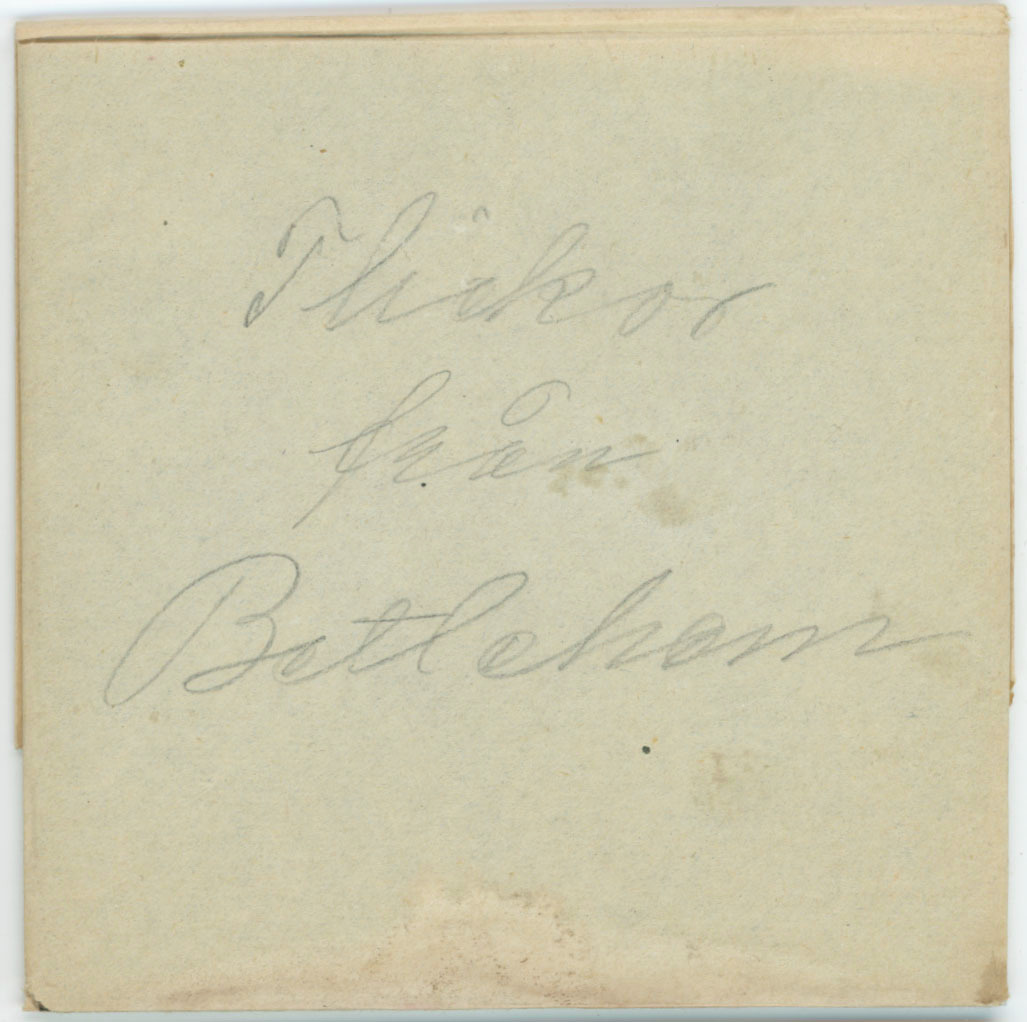 Flickor
från
Betlehem